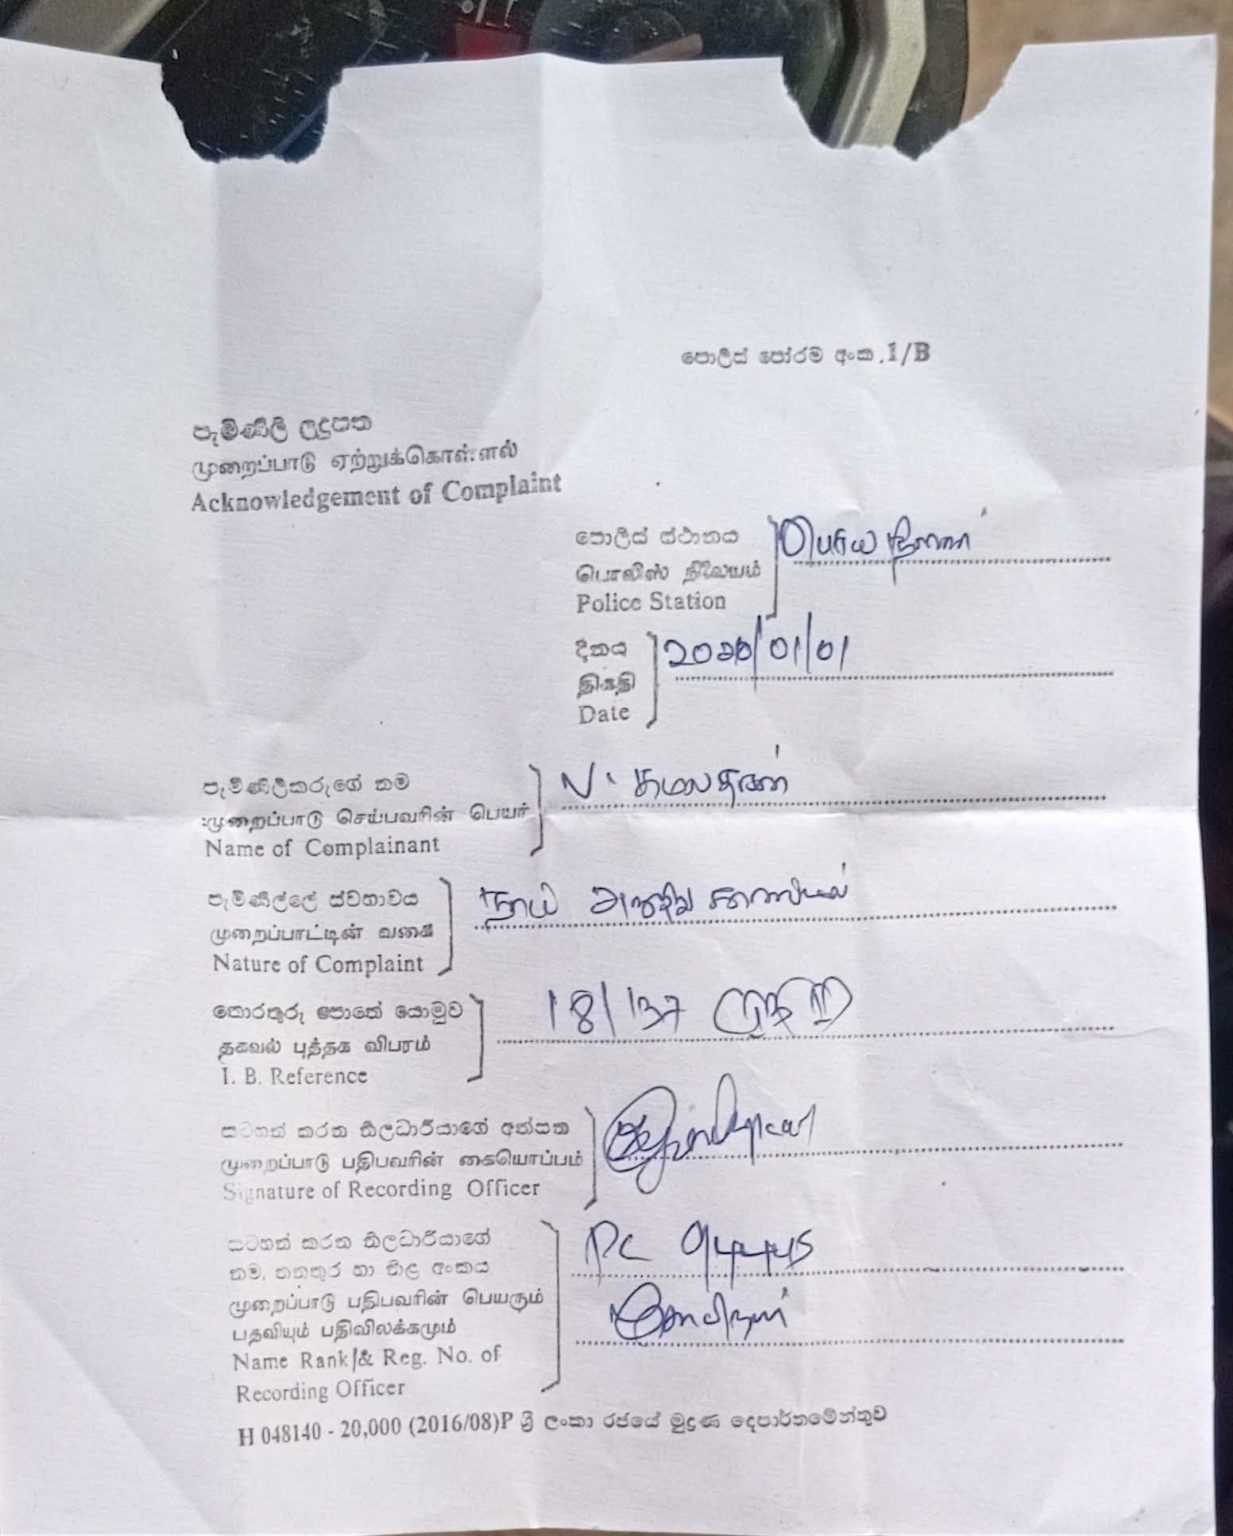 පොලිස් පෝරම අංක .1/B
පැමිණිලි ලදුපත
முறைப்பாடு ஏற்றுக்கொள்ளல்
Acknowledgement of Complaint
පොලිස් ස්ථානය
பொலிஸ் நிலையம்
Police Station
දිනය
திகதி
Date
පැමිණිලිකරුගේ නම
N.
முறைப்பாடு செய்பவரின் பெயர்
Name of Complainant
පැමිණිල්ලේ ස්වභාවය
முறைப்பாட்டின் வகை
Nature of Complaint
තොරතුරු පොතේ යොමුව
18/137
தகவல் புத்தக விபரம்
I. B. Reference
සටහන් කරන නිලධාරියාගේ අත්සන
முறைப்பாடு பதிபவரின் கையொப்பம்
Signature of Recording Officer
සටහන් කරන නිලධාරියාගේ
PC
නම, තනතුර හා නිළ අංකය
முறைப்பாடு பதிபவரின் பெயரும்
பதவியும் பதிவிலக்கமும்
Name Rank & Reg. No. of
Recording Officer
H 048140 - 20,000 (2016/08)P ශ්‍රී ලංකා රජයේ මුද්‍රණ දෙපාර්තමේන්තුව